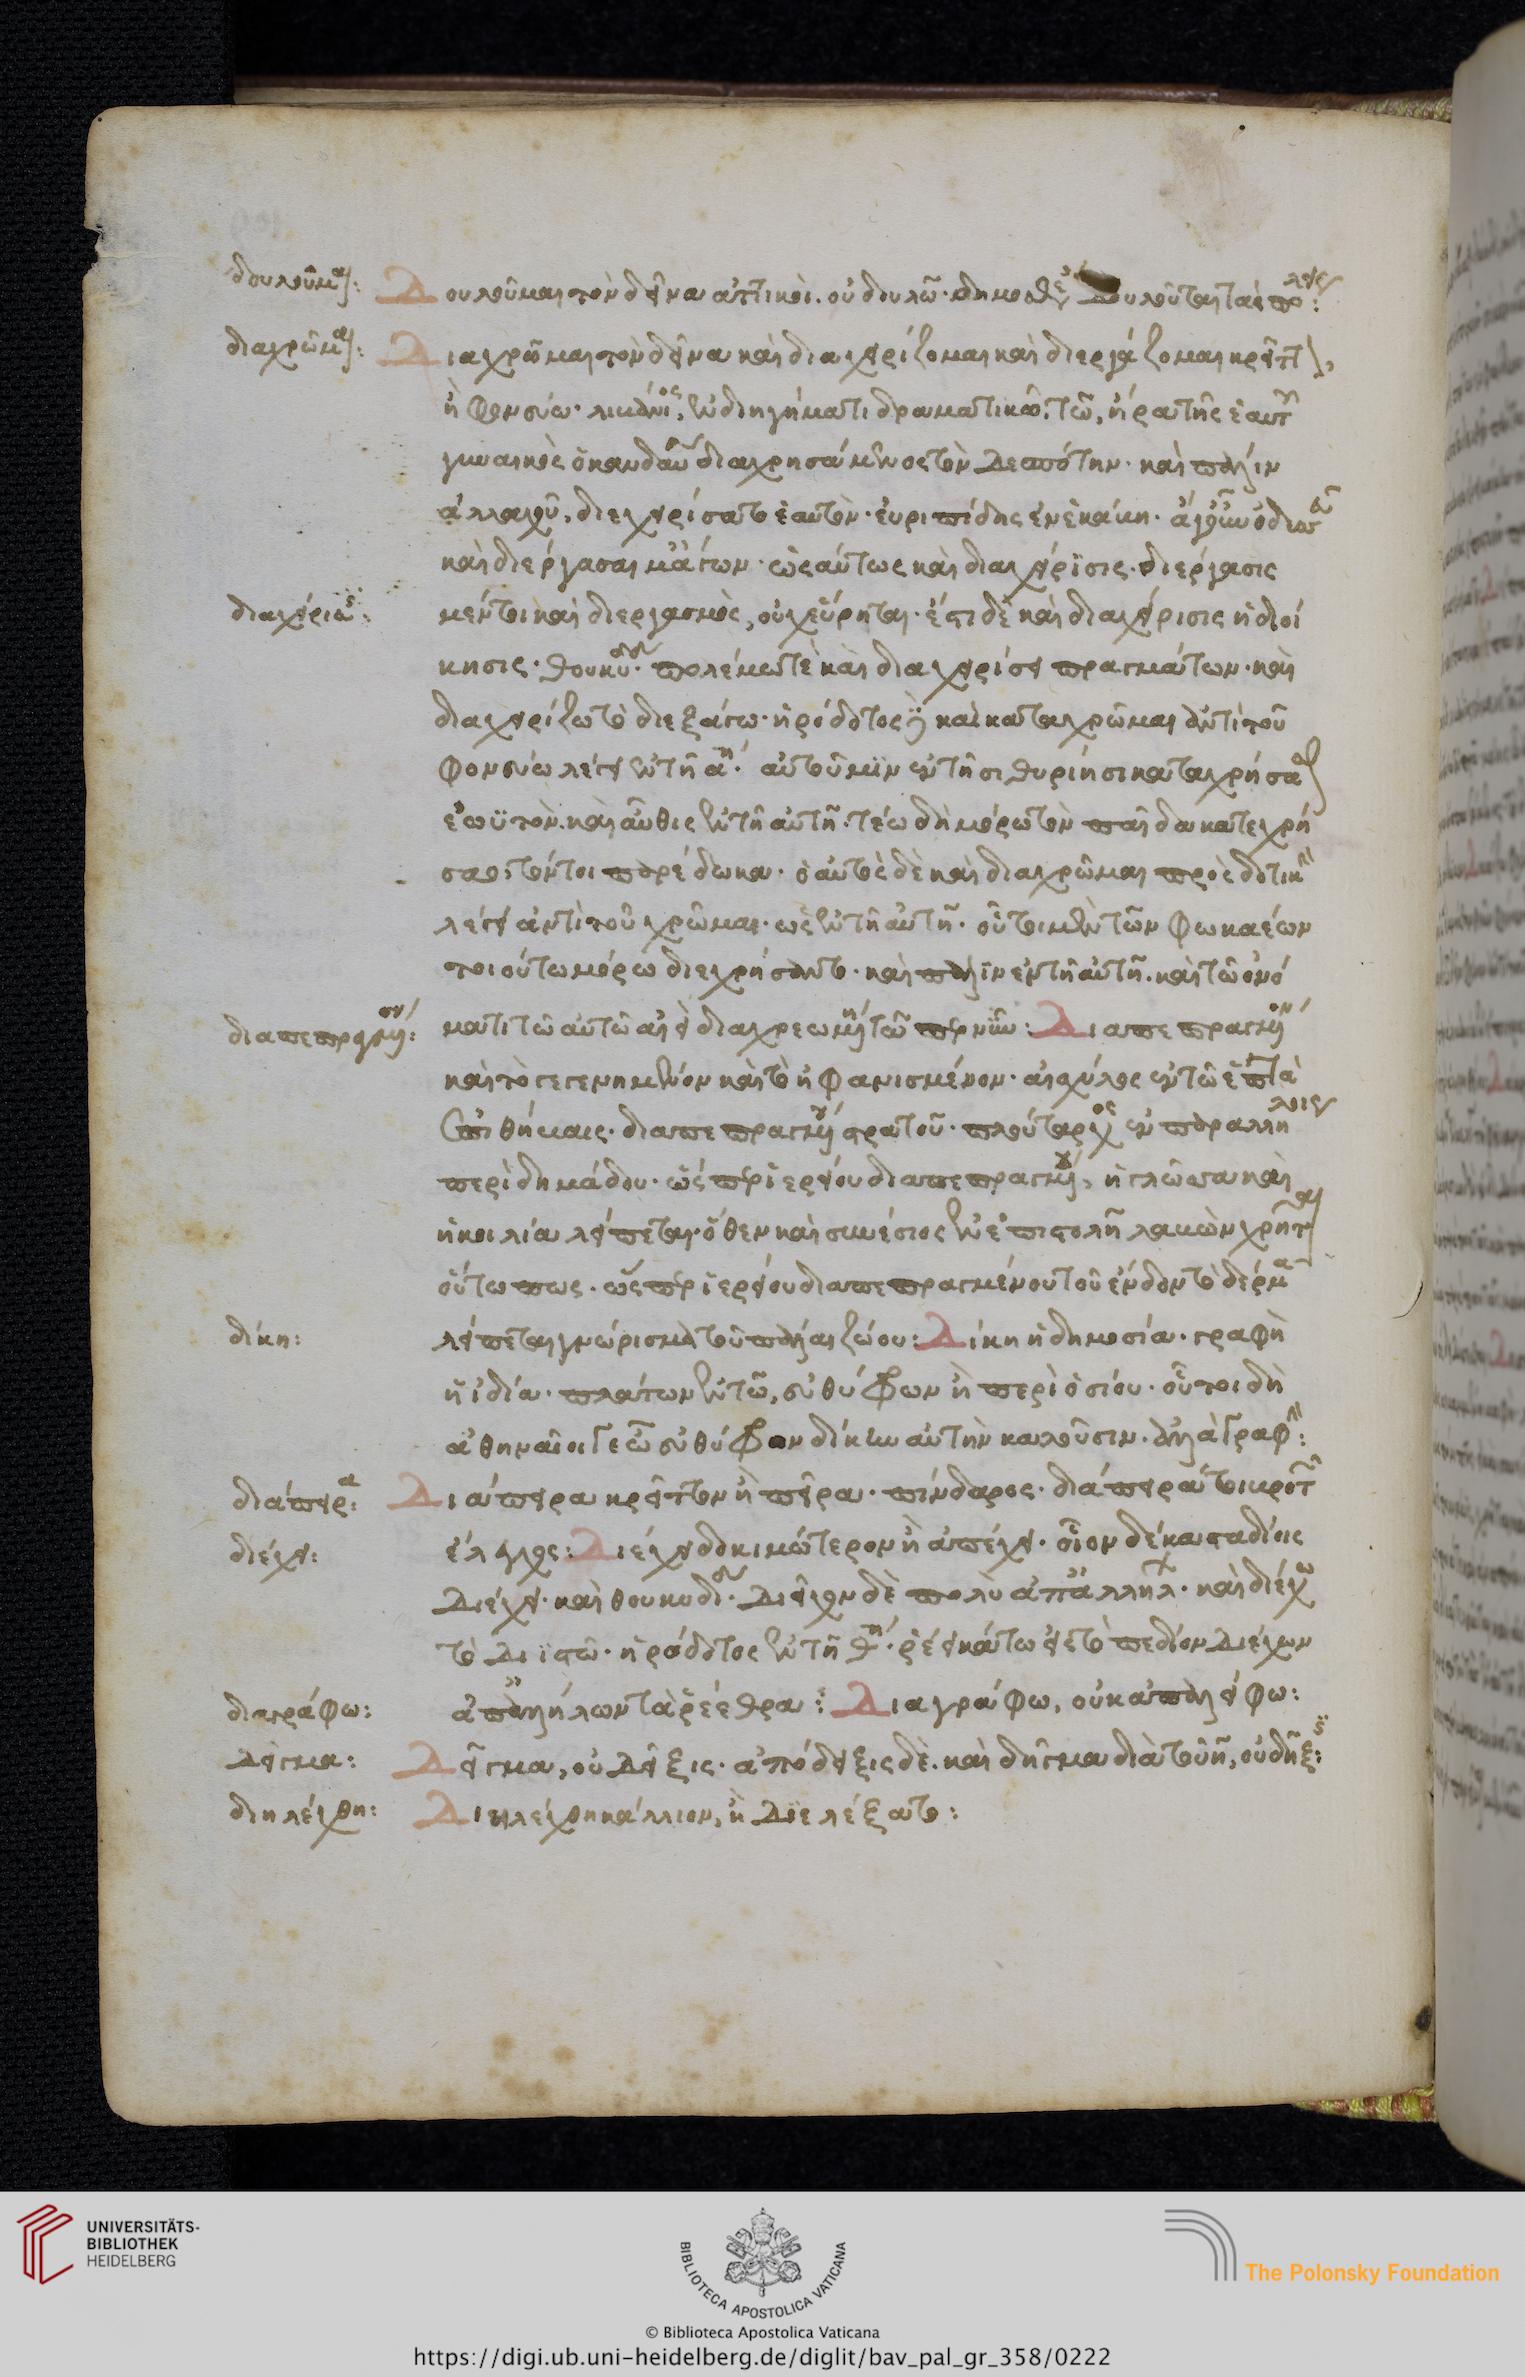 δουλοῦμαι: Δουλοῦμαι τὸν δεῖνα ἀττικοί. οὐ δουλῶ. δημοσθένης δουλοῦται τὰς πόλεις:
διαχρῶμαι: Διαχρῶμαι τὸν δεῖνα καὶ διαχειρίζομαι καὶ διεργάζομαι κρεῖττον,
ἢ φονεύω. λιβάνιος, ἐν διηγήματι δραματικῶ, τῶ, ἠράσθης ἑαυτοῦ
γυναικὸς ὁ κανδαύλης διαχρησάμενος τὸν δεσπότην. καὶ πάλιν
ἀλλαχοῦ, διεχειρίσατο ἑαυτὸν. εὐριπίδης ἐν ἑκάβη.
καὶ διέργασαι μάτων. ὡς αὕτως καὶ διαχείρϊσις. διέργασις
διαχείρισις: μέντοι καὶ διεργασμὸς, οὐχ εὕρηται. ἔστι δὲ καὶ διαχείρισις ἡ διοί
κησις. θουκυδίδης. πολέμω τὲ καὶ διαχειρίσει πραγμάτων. καὶ
διαχειρίζω τὸ διεξάγω. ἡρόδοτος δὲ καὶ καταχρῶμαι ἀντὶ τοῦ
φονεύω λέγει ἐν τῆ αʹ. αὐτοῦ μϊν ἐν τῆσι θυρίησι καταχρήσασθαι
ἐωϋτόν. καὶ αὖθις ἐν τῆ αὐτῆ. τέω δὴ μόρω τὸν παῖδα κατεχρή
σαο, τόν τοι παρέδωκα. ὁ αὐτὸς δὲ καὶ διαχρῶμαι πρὸς δοτικὴν
λέγει ἀντὶ τοῦ χρῶμαι. ὡς ἐν τῆ αὐτῆ. οὗτοι μὲν τῶν φωκαέων
τοιούτω μόρω διεχρήσαντο. καὶ πάλϊν ἐν τῆ αὐτῆ. καὶ τῶ ὀνό
διαπεπραγμένον: ματι τῶ αὐτῶ αἰεὶ διαχρεωμένη τῶν περσέων: Διαπεπραγμένον
καὶ τὸ γεγενημένον καὶ τὸ ἠφανισμένον. αἰσχύλος ἐν τῶ ἑπτὰ
ἐπὶ θήβαις. διαπεπραγμένου στρατοῦ. πλούταρχος ἐν παραλλήλοις
περὶ δημάδου. ὥσπερ ἱερείου διαπεπραγμένου, ἡ γλῶσσα καὶ
ἡ κοιλία λείπεται. ὅθεν καὶ συνέσιος ἐν ἐπιστολῆ λαβὼν χρῆται
οὕτω πως. ὥσπερ ἱερείου διαπεπραγμένου τοῦ ἔνδον τὸ δέρμα
δίκη: λείπεται γνώρισμα τοῦ πάλαι ζώου: Δίκη ἡ δημοσία. γραφὴ
ἡ ἰδία. πλάτων ἐν τῶ, εὐθύφρων ἢ περὶ ὁσίου. οὔτοι δὴ
ἀθηναῖοί γε ὦ εὐθύφρον δίκην αὐτὴν καλοῦσιν. ἀλλὰ γραφήν:
διάπειρα: Διάπειρα κρεῖττον ἢ πεῖρα. πίνδαρος. διάπειρά τοι βροτῶν
διέχει: ἔλεγχος: Διέχει δοκιμώτερον ἢ ἀπέχει. οἷον δέκα σταδίοις
διέχει. καὶ θουκυδίδης. διεῖχον δὲ πολὺ ἀπ' ἀλλήλων. καὶ διέχω
τὸ διϊστῶ. ἡρόδοτος ἐν τῆ θʹ. ῥέει κάτω εἰς τὸ πεδίον διέχων
διαγράφω: ἀπ' ἀλλήλων τὰ ῥέεθρα: Διαγράφω, οὐκ ἀπαλείφω:
δεῖγμα: Δεῖγμα, οὐ δεῖξις. ἀπόδειξις δὲ. καὶ δῆγμα διὰ τοῦ η, οὐ δῆξις:
διηλέχθη: Διηλέχθη κάλλιον, ἢ διελέξατο:
UNIVERSITÄTS-
BIBLIOTHEK
HEIDELBERG
BIBLIOTECA APOSTOLICA VATICANA
The Polonsky Foundation
© Biblioteca Apostolica Vaticana
https://digi.ub.uni-heidelberg.de/diglit/bav_pal_gr_358/0222